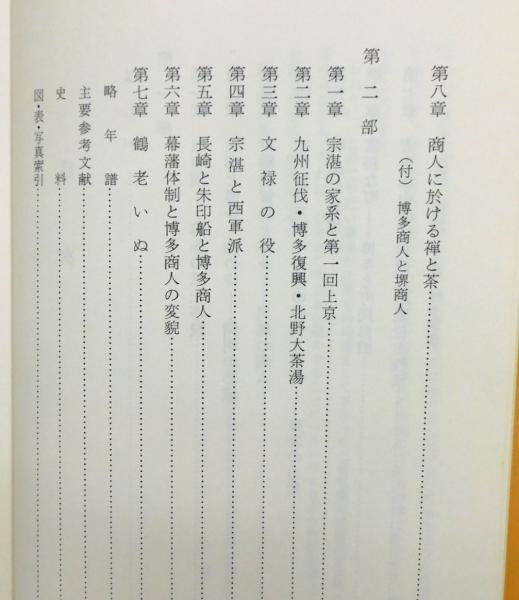 第八章 商人に於ける禅と茶
(付) 博多商人と堺商人
第二部
第一章 宗湛の家系と第一回上京
第二章 九州征伐・博多復興・北野大茶湯
第三章 文禄の役
第四章 宗湛と西軍派
第五章 長崎と朱印船と博多商人
第六章 幕藩体制と博多商人の変貌
第七章 鶴老いぬ
略年譜
主要参考文献
史料
図・表・写真索引